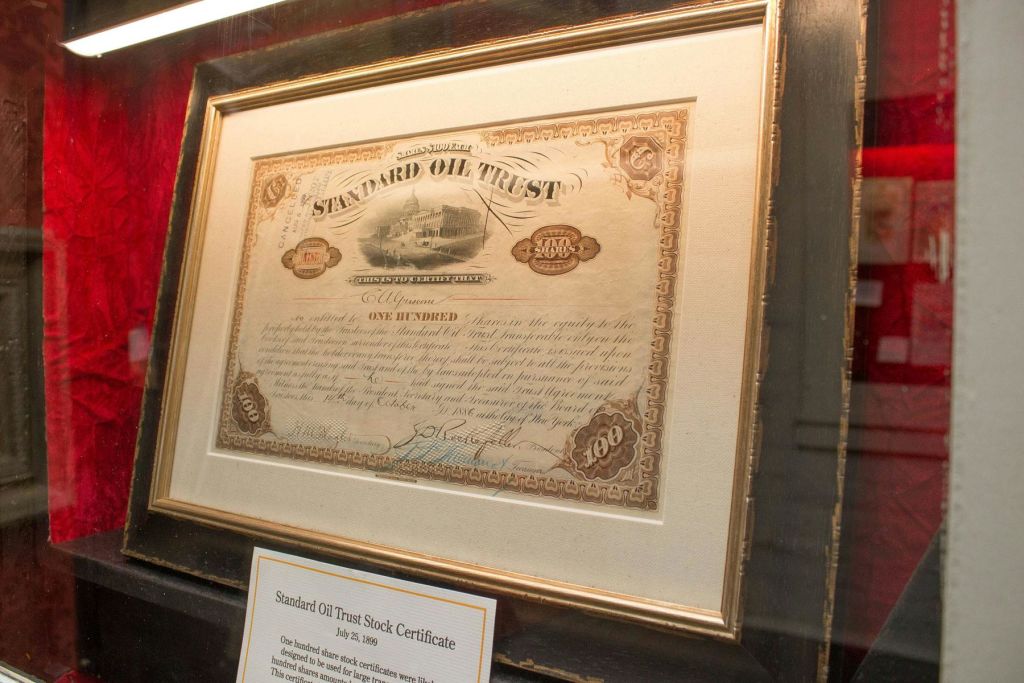 SHARES $100 EACH
STANDARD OIL TRUST
CANCELLED
100
SHARES
THIS IS TO CERTIFY THAT
is entitled to ONE HUNDRED Shares in the equity to the
property held by the Trustees of the Standard Oil Trust, transferable only on the
books of said Trustees on surrender of this Certificate. This Certificate is issued upon
condition that the holder or any transferee thereof shall be subject to all the provisions
of the agreement creating said Trust and of the by laws adopted in pursuance of said
agreement as fully as if had signed the said Trust Agreement
Witness the hands of the President Secretary and Treasurer of the Board of
Trustees this day of October 1886 in the City of New York
Secretary
President
Treasurer
100
100
Standard Oil Trust Stock Certificate
July 25, 1899
One hundred share stock certificates were
designed to be used for large
hundred shares
This